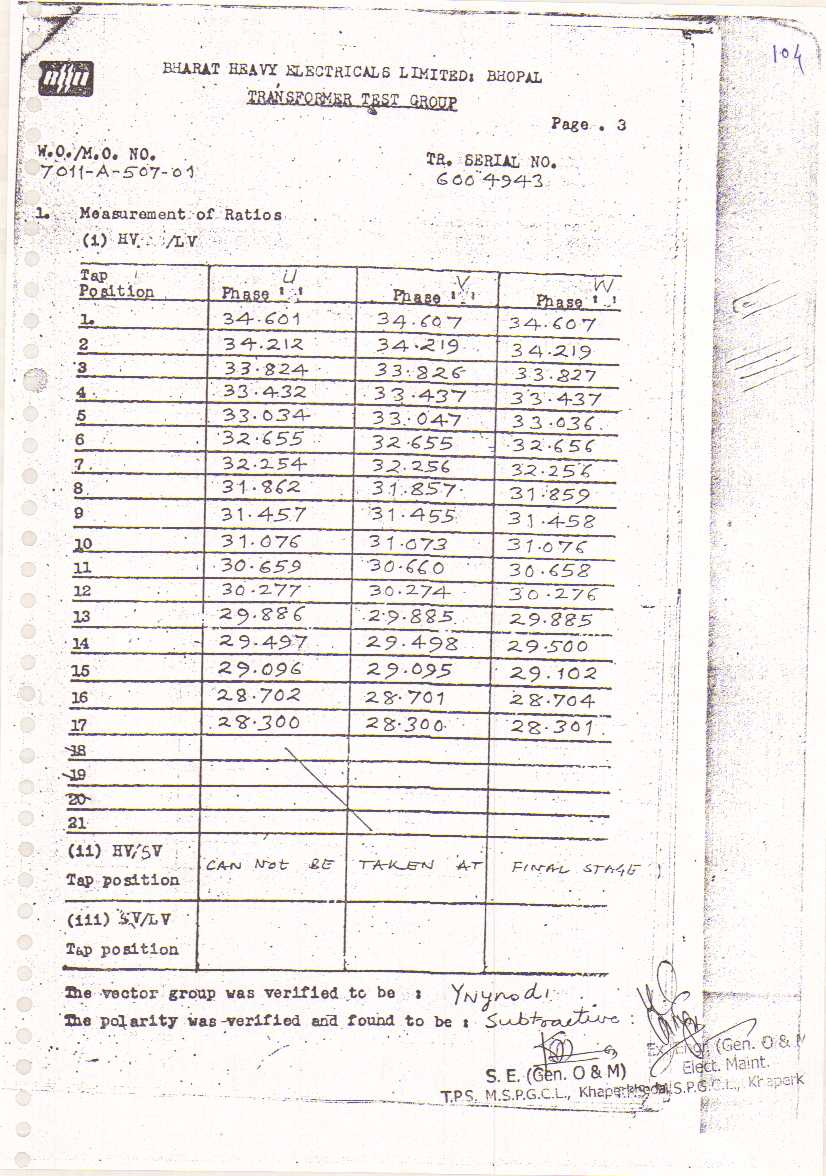 104
BHARAT HEAVY ELECTRICALS LIMITED: BHOPAL
TRANSFORMER TEST GROUP
Page . 3
W.O./M.O. NO.
7011-A-507-01
TR. SERIAL NO.
6004943
1. Measurement of Ratios
(i) HV /LV
Tap Position Phase 'U' Phase 'V' Phase 'W'
1. 34.601 34.607 34.607
2 34.212 34.219 34.219
3 33.824 33.826 33.827
4 33.432 33.437 33.437
5 33.034 33.047 33.036
6 32.655 32.655 32.656
7 32.254 32.256 32.256
8 31.862 31.857 31.859
9 31.457 31.455 31.458
10 31.076 31.073 31.076
11 30.659 30.660 30.658
12 30.277 30.274 30.276
13 29.886 29.885 29.885
14 29.497 29.498 29.500
15 29.096 29.095 29.102
16 28.702 28.701 28.704
17 28.300 28.300 28.301
18
19
20
21
(ii) HV/SV
Tap position CAN NOT BE TAKEN AT FINAL STAGE
(iii) SV/LV
Tap position
The vector group was verified to be : YNynod1
The polarity was verified and found to be : Subtractive
S. E. (Gen. O & M)
T.P.S. M.S.P.G.C.L., Khaperkheda
(Gen. O & M
Elect. Maint.
M.S.P.G.C.L., Khaperk